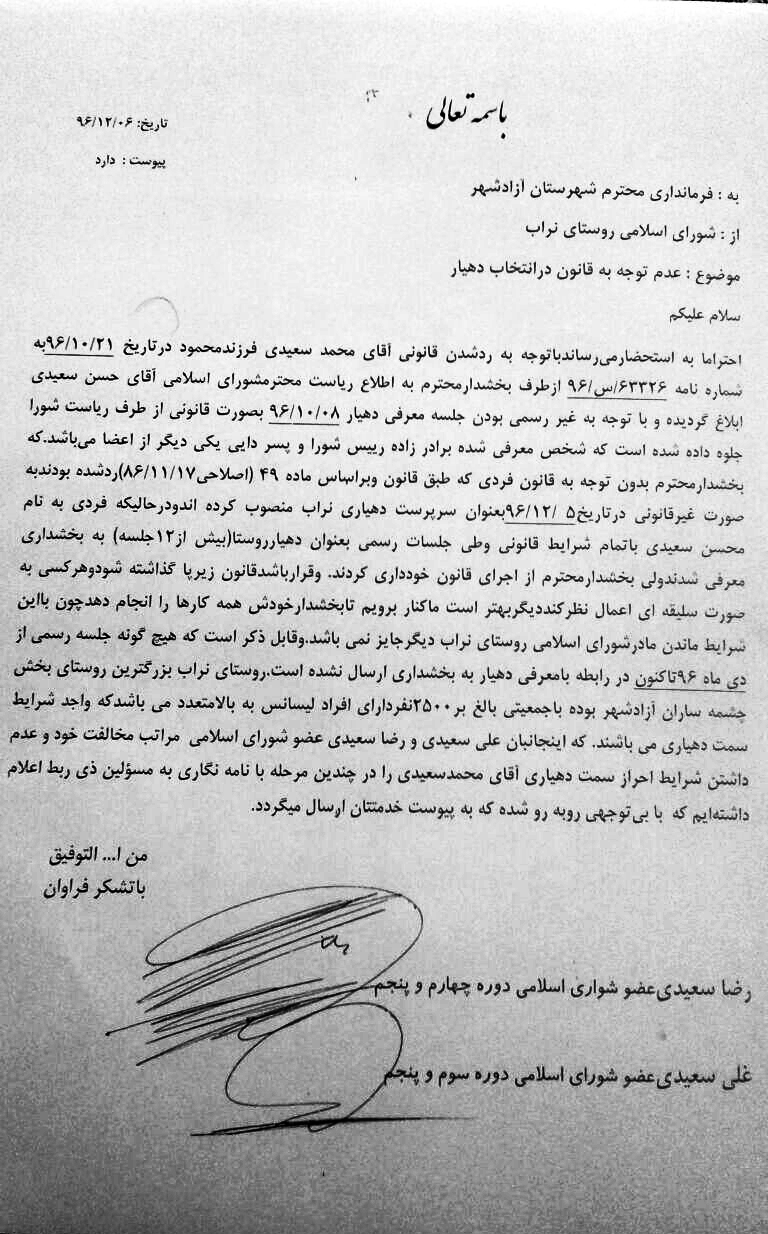 باسمه تعالی
تاریخ: ۹۶/۱۲/۰۶
پیوست : دارد
به : فرمانداری محترم شهرستان آزادشهر
از : شورای اسلامی روستای نراب
موضوع : عدم توجه به قانون درانتخاب دهیار
سلام علیکم
احتراما به استحضارمی‌رساندباتوجه به ردشدن قانونی آقای محمد سعیدی فرزندمحمود درتاریخ ۹۶/۱۰/۲۱به
شماره نامه ۶۳۳۲۶/س/۹۶ ازطرف بخشدارمحترم به اطلاع ریاست محترمشورای اسلامی آقای حسن سعیدی
ابلاغ گردیده و با توجه به غیر رسمی بودن جلسه معرفی دهیار ۹۶/۱۰/۰۸ بصورت قانونی از طرف ریاست شورا
جلوه داده شده است که شخص معرفی شده برادر زاده رییس شورا و پسر دایی یکی دیگر از اعضا می‌باشد.که
بخشدارمحترم بدون توجه به قانون فردی که طبق قانون وبراساس ماده ۴۹ (اصلاحی۸۶/۱۱/۱۷)ردشده بودندبه
صورت غیرقانونی درتاریخ۵ /۹۶/۱۲بعنوان سرپرست دهیاری نراب منصوب کرده اندودرحالیکه فردی به نام
محسن سعیدی باتمام شرایط قانونی وطی جلسات رسمی بعنوان دهیارروستا(بیش از۱۲جلسه) به بخشداری
معرفی شدندولی بخشدارمحترم از اجرای قانون خودداری کردند. وقرارباشدقانون زیرپا گذاشته شودوهرکسی به
صورت سلیقه ای اعمال نظرکنددیگربهتر است ماکنار برویم تابخشدارخودش همه کارها را انجام دهدچون بااین
شرایط ماندن مادرشورای اسلامی روستای نراب دیگرجایز نمی باشد.وقابل ذکر است که هیچ گونه جلسه رسمی از
دی ماه ۹۶تاکنون در رابطه بامعرفی دهیار به بخشداری ارسال نشده است.روستای نراب بزرگترین روستای بخش
چشمه ساران آزادشهر بوده باجمعیتی بالغ بر۲۵۰۰نفردارای افراد لیسانس به بالامتعدد می باشدکه واجد شرایط
سمت دهیاری می باشند. که اینجانبان علی سعیدی و رضا سعیدی عضو شورای اسلامی مراتب مخالفت خود و عدم
داشتن شرایط احراز سمت دهیاری آقای محمدسعیدی را در چندین مرحله با نامه نگاری به مسؤلین ذی ربط اعلام
داشته‌ایم که با بی‌توجهی روبه رو شده که به پیوست خدمتتان ارسال میگردد.
من ا... التوفیق
باتشکر فراوان
رضا سعیدی‌عضو شواری اسلامی دوره چهارم و پنجم
غلی سعیدی‌عضو شورای اسلامی دوره سوم و پنجم